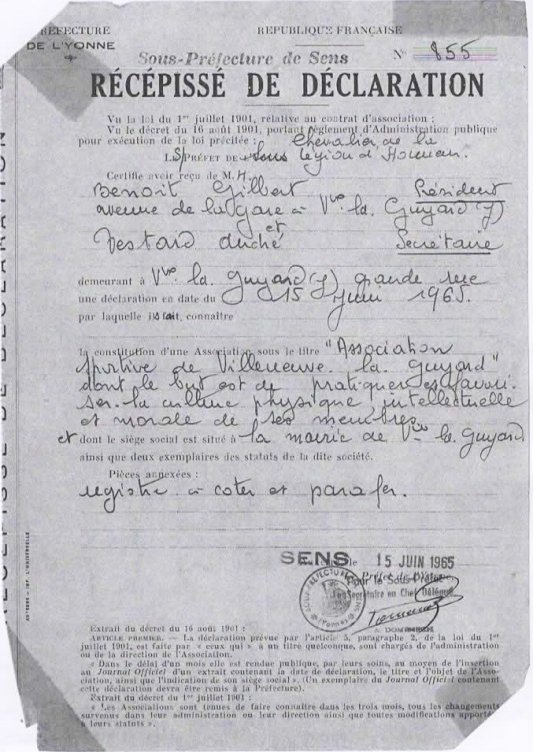 PRÉFECTURE
DE L'YONNE
RÉPUBLIQUE FRANÇAISE
Sous-Préfecture de Sens
N° 855
RÉCÉPISSÉ DE DÉCLARATION
Vu la loi du 1er juillet 1901, relative au contrat d'association ;
Vu le décret du 16 août 1901, portant règlement d'Administration publique
pour exécution de la loi précitée ; Chevalier de la
LE S/PRÉFET DE Sens Légion d'Honneur.
Certifie avoir reçu de M.M.
Benoit Gilbert Président
avenue de la Gare à Vve la Guyard (Y)
et
Testard André Secrétaire
demeurant à Vve la Guyard (Y) grande rue
une déclaration en date du 15 Juin 1965.
par laquelle ils font connaître
la constitution d'une Association sous le titre "Association
Sportive de Villeneuve la Guyard"
dont le but est de pratiquer et favori-
ser la culture physique intellectuelle
et morale de ses membres
et dont le siège social est situé à la mairie de Vve la Guyard
ainsi que deux exemplaires des statuts de la dite société.
Pièces annexées :
registre à coter et parafer.
SENS, le 15 JUIN 1965
Pour le Sous-Préfet
Le Secrétaire en Chef Délégué,
Extrait du décret du 16 août 1901 :
ARTICLE PREMIER. — La déclaration prévue par l'article 5, paragraphe 2, de la loi du 1er
juillet 1901, est faite par « ceux qui » à un titre quelconque, sont chargés de l'administration
ou de la direction de l'Association.
« Dans le délai d'un mois elle est rendue publique, par leurs soins, au moyen de l'insertion
au Journal Officiel d'un extrait contenant la date de déclaration, le titre et l'objet de l'Asso-
ciation, ainsi que l'indication de son siège social ». (Un exemplaire du Journal Officiel contenant
cette déclaration devra être remis à la Préfecture).
Extrait du décret du 1er juillet 1901 :
« Les Associations sont tenues de faire connaître dans les trois mois, tous les changements
survenus dans leur administration ou leur direction ainsi que toutes modifications apportées
à leurs statuts ».